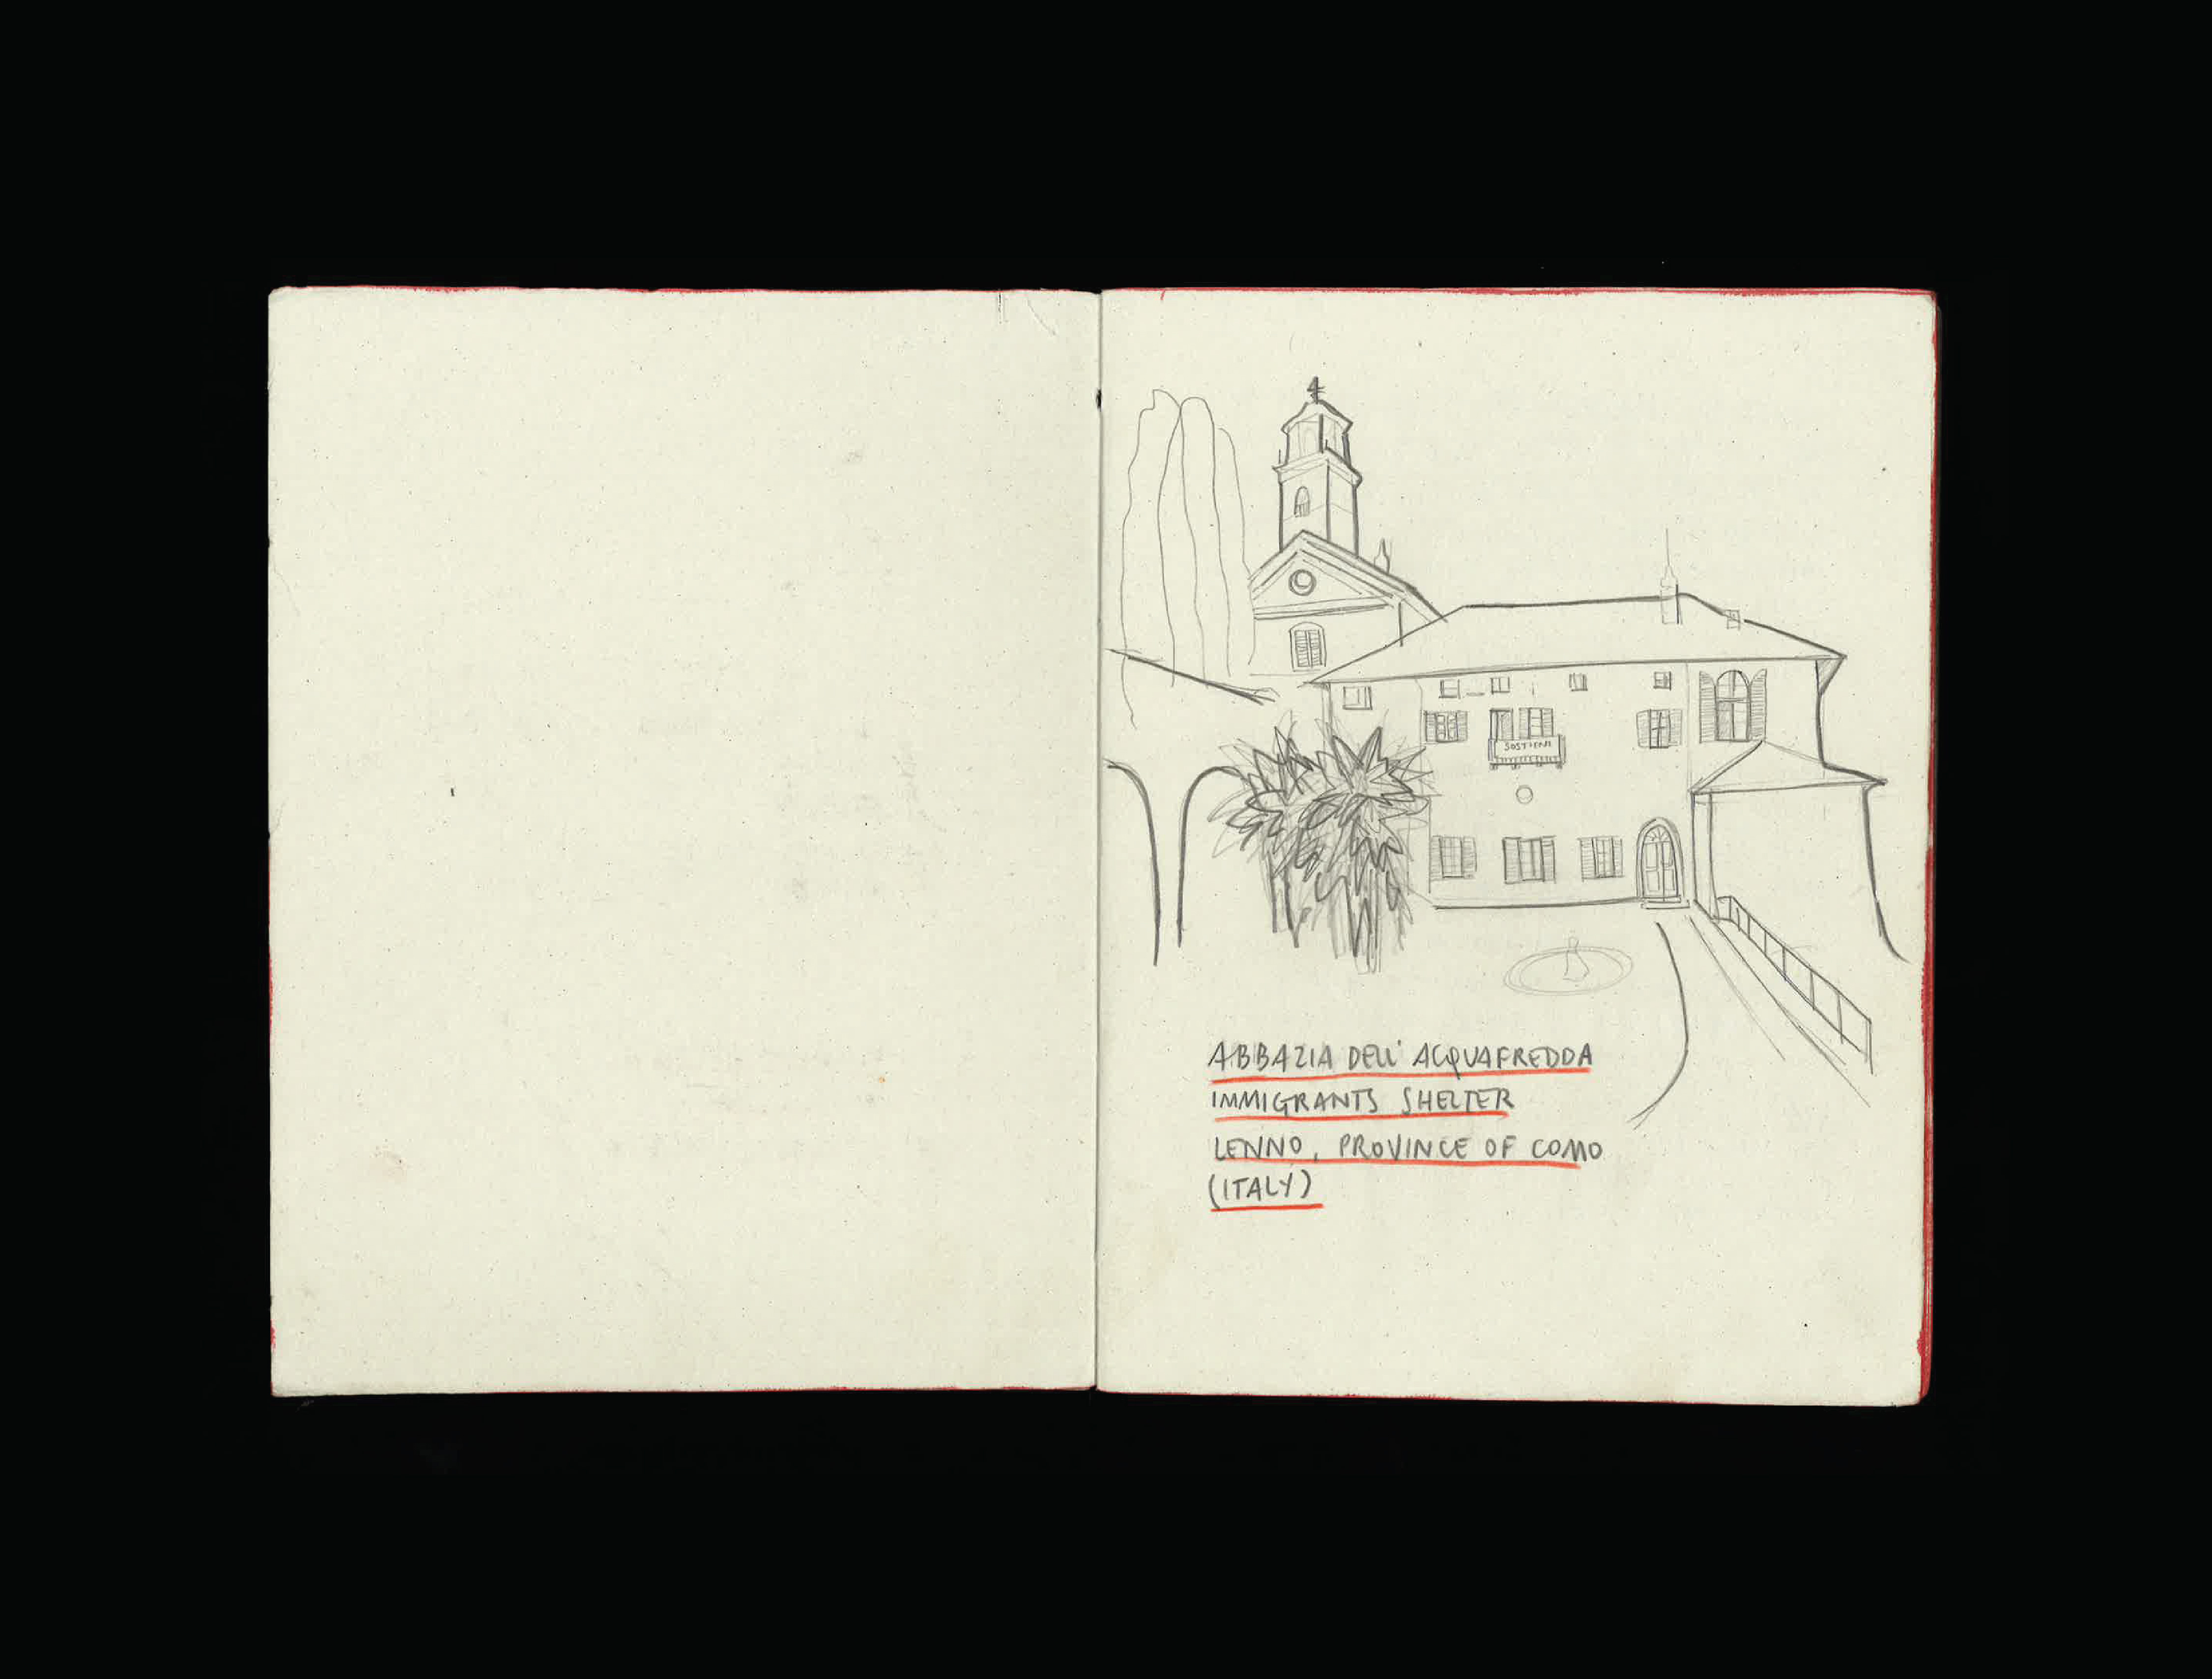 SOSTIENI
ABBAZIA DELL' ACQUAFREDDA
IMMIGRANTS SHELTER
LENNO, PROVINCE OF COMO
(ITALY)